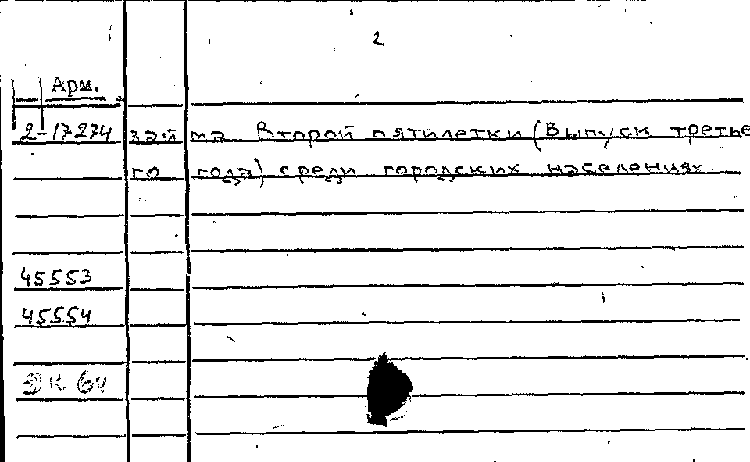 2
Арм.
2-17274 займа Второй пятилетки (Выпуск третье
го года) среди городских населениях
45553
45554